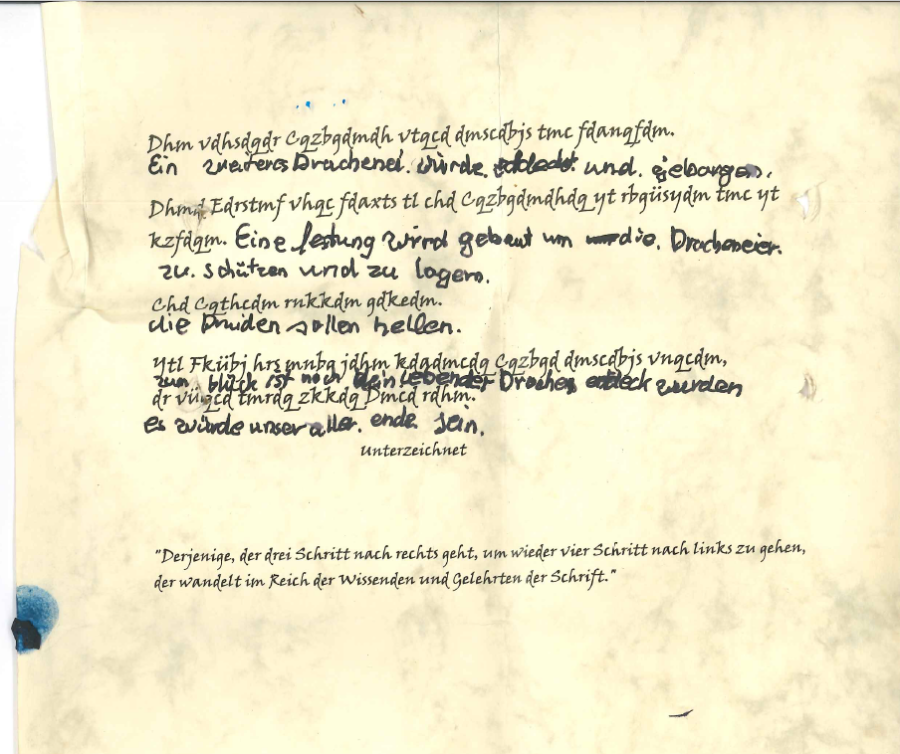 Dhm vdhsdqdr Cqzbgdmdh vtqcd dmscdbjs tmc fdanqfdm.
Ein weiteres Drachenei. würde entdeckt und. geborgen.
Dhmd Edrstmf vhqc fdaxts tl chd Cqzbgdmdhdq yt rbgüsydm tmc yt
Eine festung wird gebaut um die. Dracheneier.
kzfdqm.
zu. schützen und zu lagern.
Chd Cqthcdm rnkkdm gdkedm.
die Druiden sollen helfen.
Ytl Fkübj hrs mnbg jdhm kdadmcdq Cqzbgd dmscdbjs vnqcdm,
zum blück ist noch kein lebender Drache entdeck wurden
dr vüqcd tmrdq zkkdq Dmcd rdhm.
es würde unser aller. ende sein.
Unterzeichnet
"Derjenige, der drei Schritt nach rechts geht, um wieder vier Schritt nach links zu gehen,
der wandelt im Reich der Wissenden und Gelehrten der Schrift."